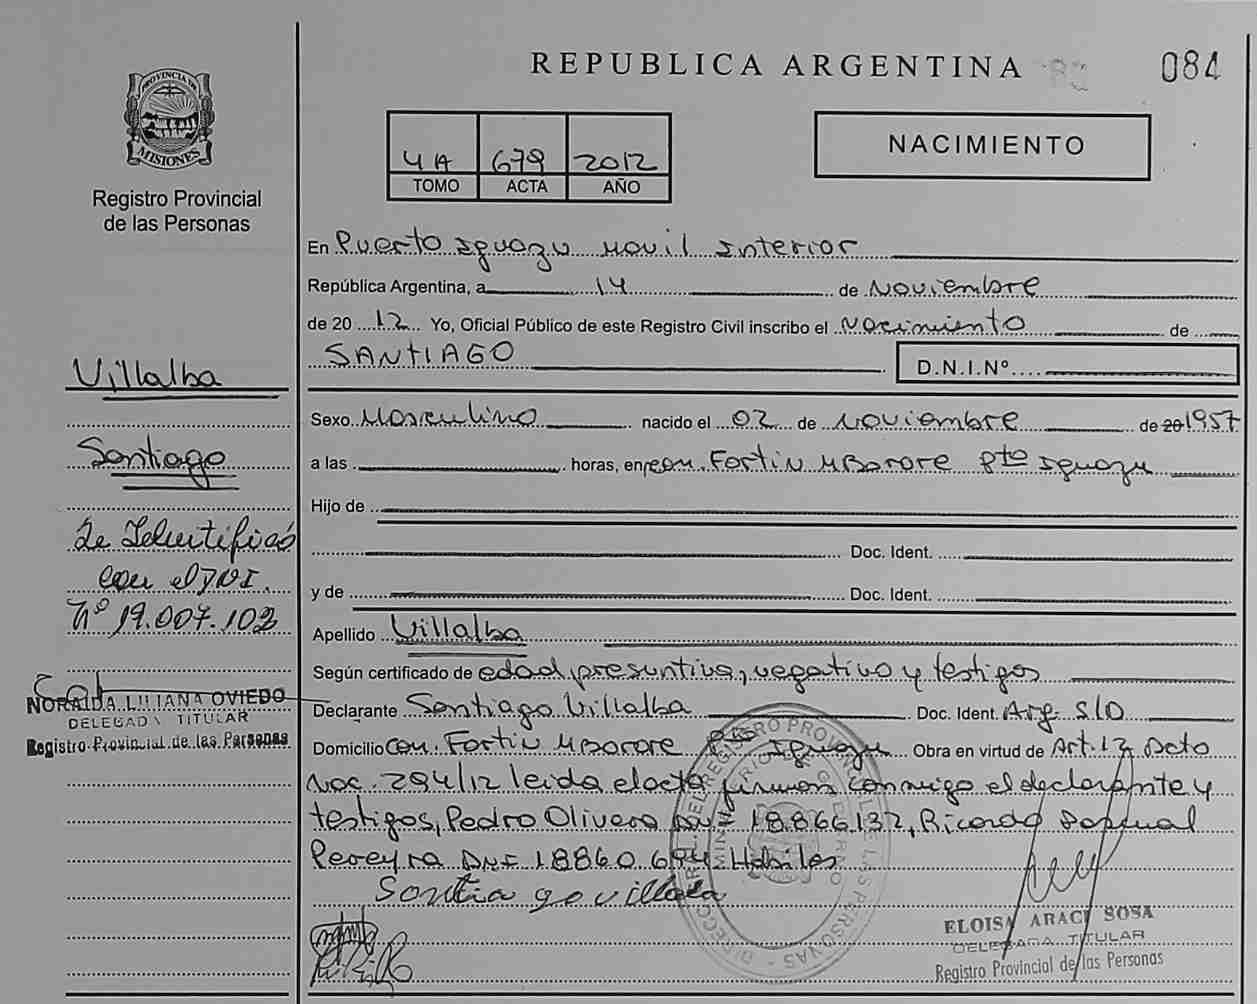 REPUBLICA ARGENTINA
084
PROVINCIA DE
MISIONES
Registro Provincial
de las Personas
4A 679 2012
TOMO ACTA AÑO
NACIMIENTO
En Puerto Iguazu Movil Interior
República Argentina, a 14 de Noviembre
de 20 12 Yo, Oficial Público de este Registro Civil inscribo el Nacimiento de
SANTIAGO
D.N.I.Nº
Villalba
Santiago
Se Identificó
con el DNI.
Nº 19.007.102
NORAIDA LILIANA OVIEDO
DELEGADA TITULAR
Registro Provincial de las Personas
Sexo Masculino nacido el 02 de Noviembre de 20 1957
a las horas, en com. Fortin MBorore Pto Iguazu
Hijo de
Doc. Ident.
y de Doc. Ident.
Apellido Villalba
Según certificado de edad presuntiva, negativo y testigos
Declarante Santiago Villalba Doc. Ident. Arg. S/D
Domicilio com. Fortin MBorore Pto Iguazu Obra en virtud de Art. 12 Dcto
Nac. 294/12 leida el acta firman conmigo el declarante y
testigos, Pedro Olivera DNI 18866132, Ricardo Pascual
Pereyra DNI 18860.694 Habiles
Santia go villalba
ELOISA ARACI SOSA
DELEGADA TITULAR
Registro Provincial de las Personas